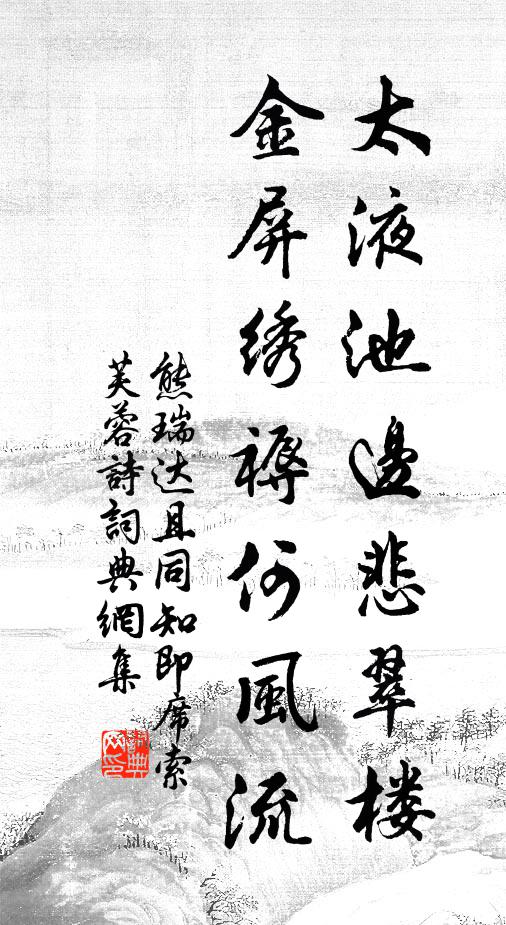 太液池邊悲翠楼
金屏绣褥何風流
熊瑞达且同知即席索
芙蓉詩詞典網集